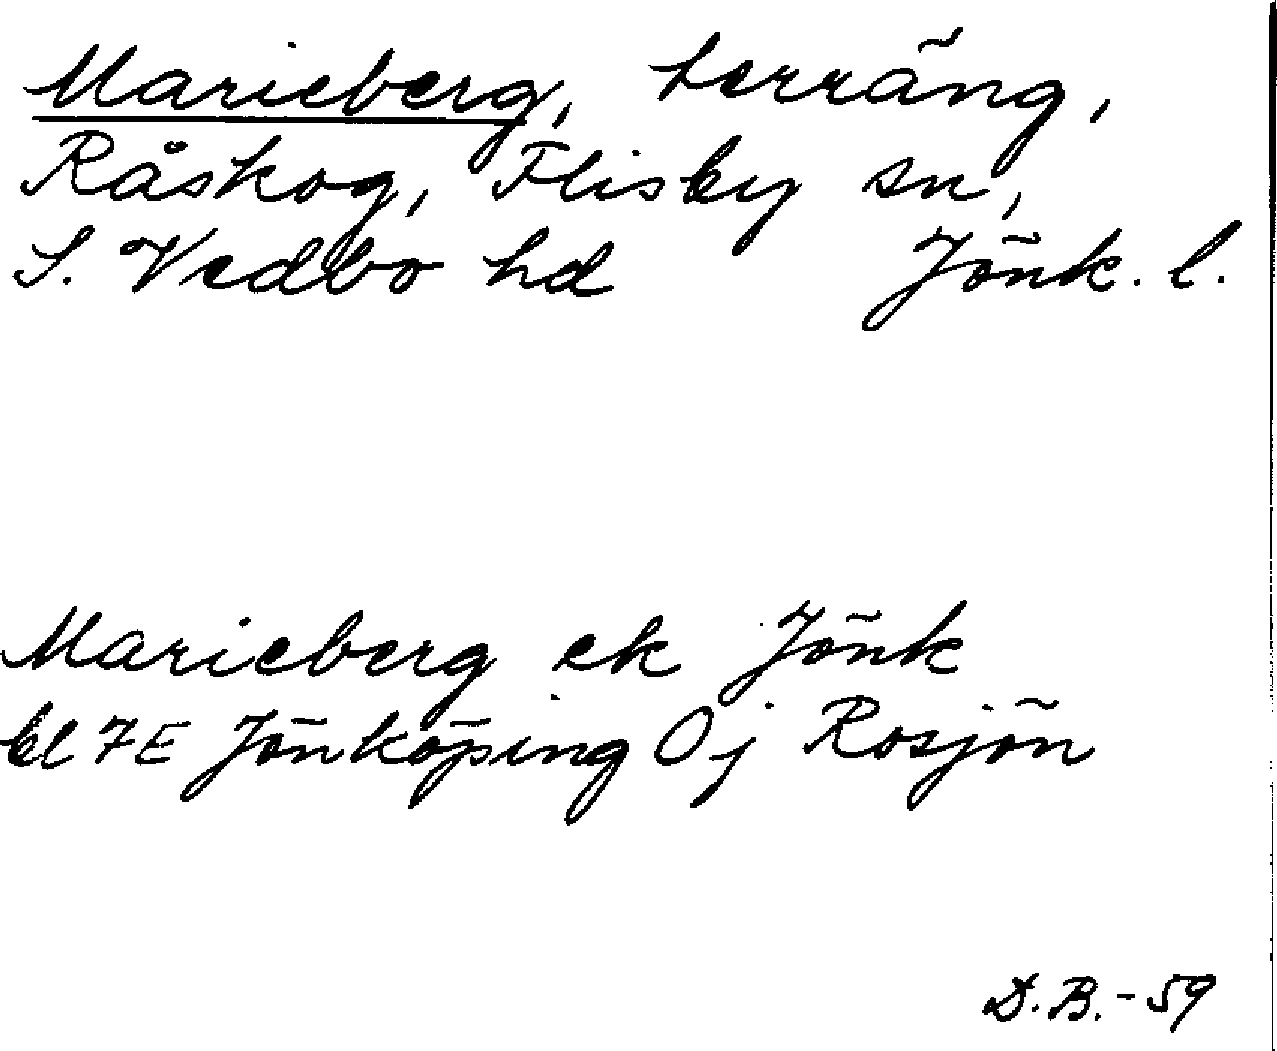 Marieberg, terräng,
Råskog, Flisby sn,
S. Vedbo hd Jönk. l.
Marieberg ek Jönk
bl 7E Jönköping Oj Rosjön
D.B.-59